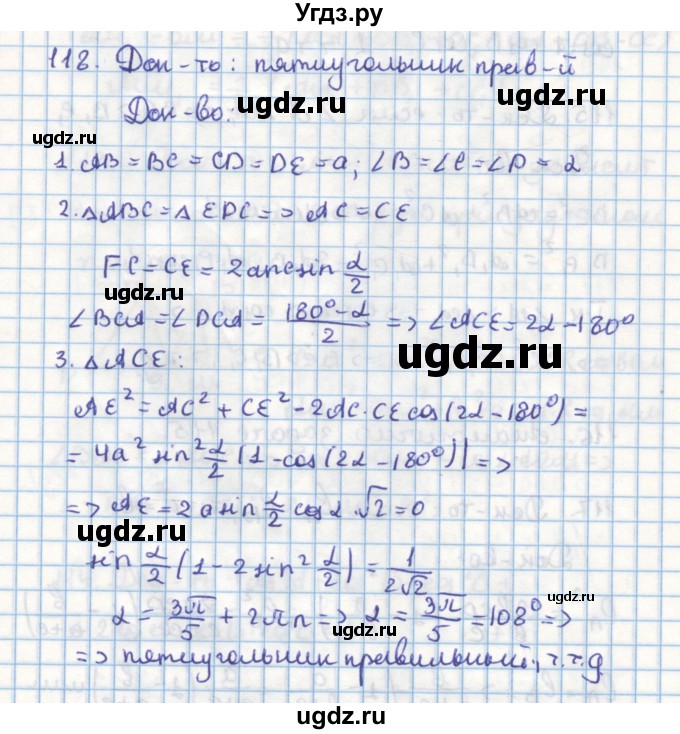 Угдз.ру
118. Док-ть: пятиугольник прав-й
ugdz.ru ugdz.ru
Док-во:
1. AB = BC = CD = DE = a; ∠B = ∠C = ∠D = α
2. △ABC = △EDC => AC = CE
FC = CE = 2arcsin α/2
ugdz.ru
∠BCA = ∠DCA = (180° - α)/2 => ∠ACE = 2α - 180°
ugdz.ru
3. △ACE:
AE² = AC² + CE² - 2AC·CE cos(2α - 180°) =
= 4a² sin² α/2 (1 - cos(2α - 180°)) =>
=> AE = 2a sin α/2 cos α √2 = 0
ugdz.ru
sin α/2 (1 - 2 sin² α/2) = 1/(2√2)
ugdz.ru
α = 3π/5 + 2πn => α = 3π/5 = 108° =>
ugdz.ru
=> пятиугольник правильный, ч.т.д
ugdz.ru